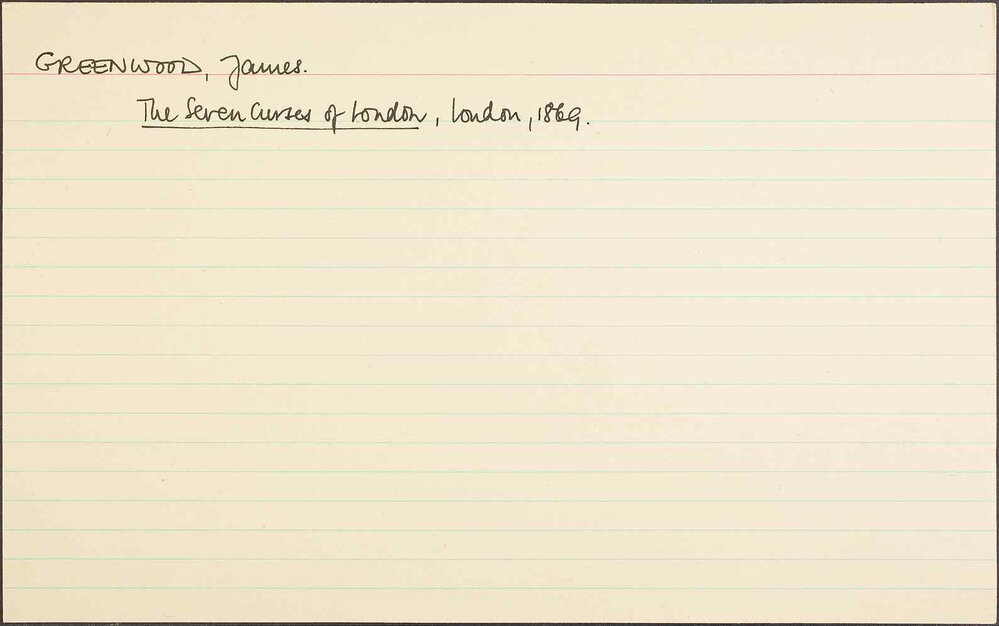 GREENWOOD, James.
The Seven Curses of London, London, 1869.